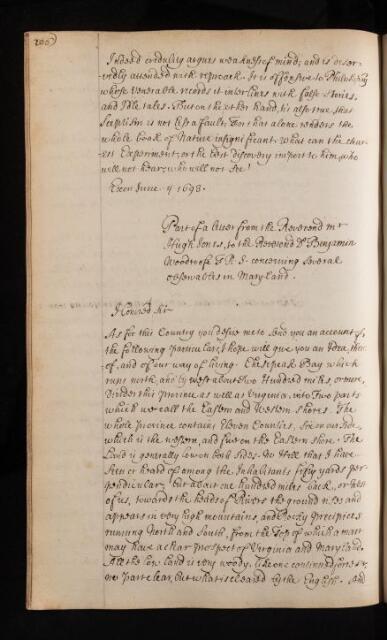 200
Indeed credulity argues weakness of mind; and is deser-
vedly attended with reproach. It is offensive to Philosophy
whose venerable records it interlines with false stories,
and Idle tales. But on the other hand, tis also true, that
Scepticism is not less a fault. For that alone renders the
whole book of Nature insignificant. What can the clear-
est Experiment, or the best discovery import to him, who
will not hear, who will not See!
Exon June 4 1698.
Part of a letter from the Reverend mr
Hugh Jones, to the Reverend Dr Benjamin
Woodroofe F.R.S. concerning Several
observables in Maryland.
Honoured Sir
As for this Country you desire me to Send you an account of,
the following particulars, I hope will give you an Idea, there
of, and of our way of living. Chesepeak Bay which
runs north, and by west about two Hundred miles, or more,
Divides this province as well as Virginia, into Two parts
which we call the Eastern and Western Shores. The
whole province contains Eleven Counties, Six on our Side,
which is the western, and five on the Eastern Shore. The
Land is generally low on both Sides. No Hill that I have
Seen or heard of among the Inhabitants fifty yards per-
pendicular; but about one hundred miles back, or West
of us, towards the heads of Rivers the ground rises and
appears in very high mountains, and Rocky Precipices
running North and South, from the Top of which a man
may have a clear prospect of Virginia and Maryland.
All the low land is very woody, like one continued forest,
no part clear, but what is cleared by the English. And